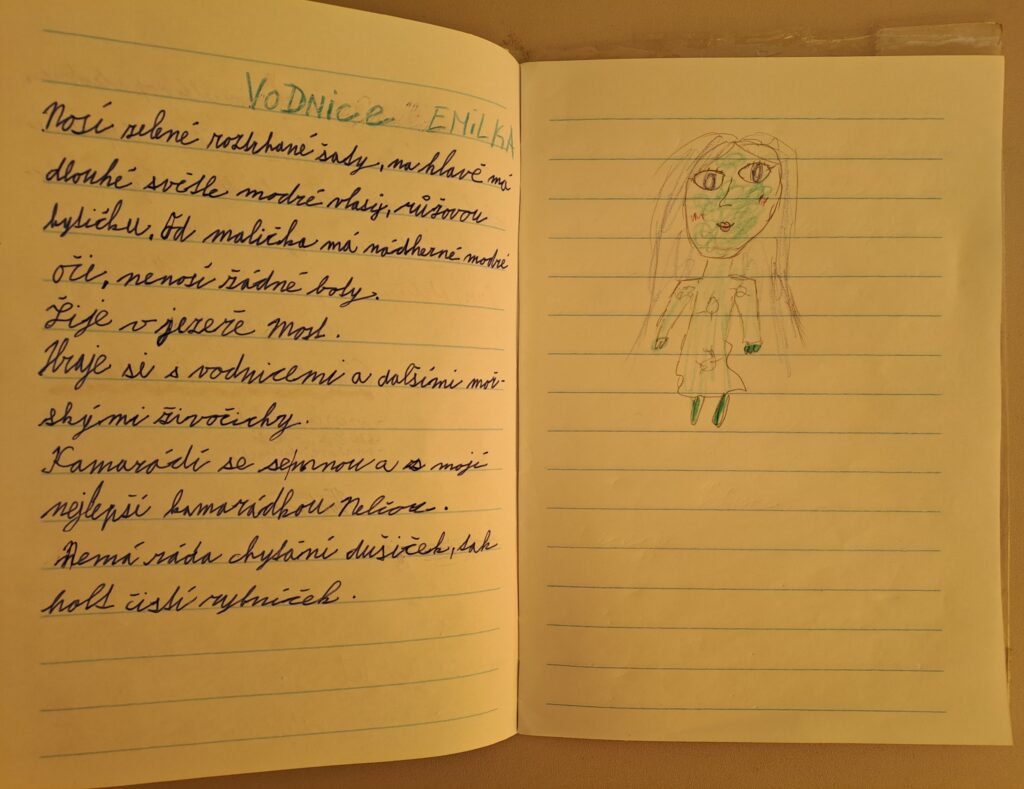 VODNICE EMILKA
Nosí zelené roztrhané šaty, na hlavě má
dlouhé světle modré vlasy, růžovou
kytičku. Od malička má nádherné modré
oči, nenosí žádné boty.
Žije v jezeře Most.
Hraje si s vodnicemi a dalšími moř-
skými živočichy.
Kamarádí se semnou a s mojí
nejlepší kamarádkou Nelčou.
Nemá ráda chytání dušiček, tak
holt čistí rybníček.